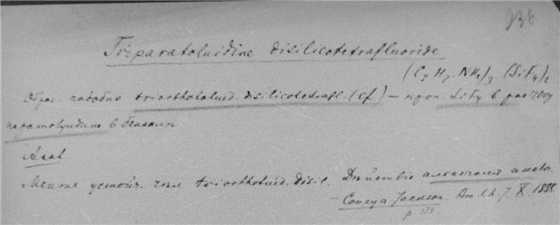 236
Triparatoluidine disilicotetrafluoride
(C7 H7 NH2)3 (SiF4)2
Образ. подобно triorthotoluid. disilicotetrafl. (cf) — проп. SiF4 в раствор
паратолуидина в бензоле
Anal
Менее устойч. чем triorthotoluid. disil. Действие алкоголя аналог.
— Comey a Jackson. Am. Ch. J. X. 1888.
p.